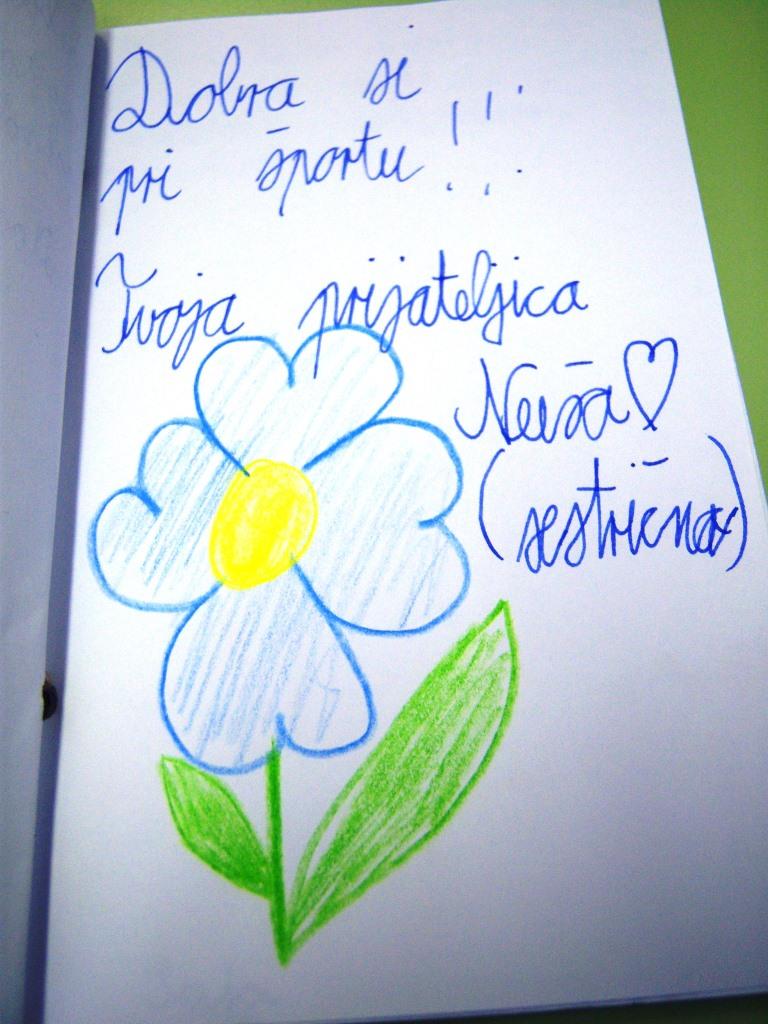 Dobra si
pri športu!!!
Tvoja prijateljica
Neiša♡
(sestrična)